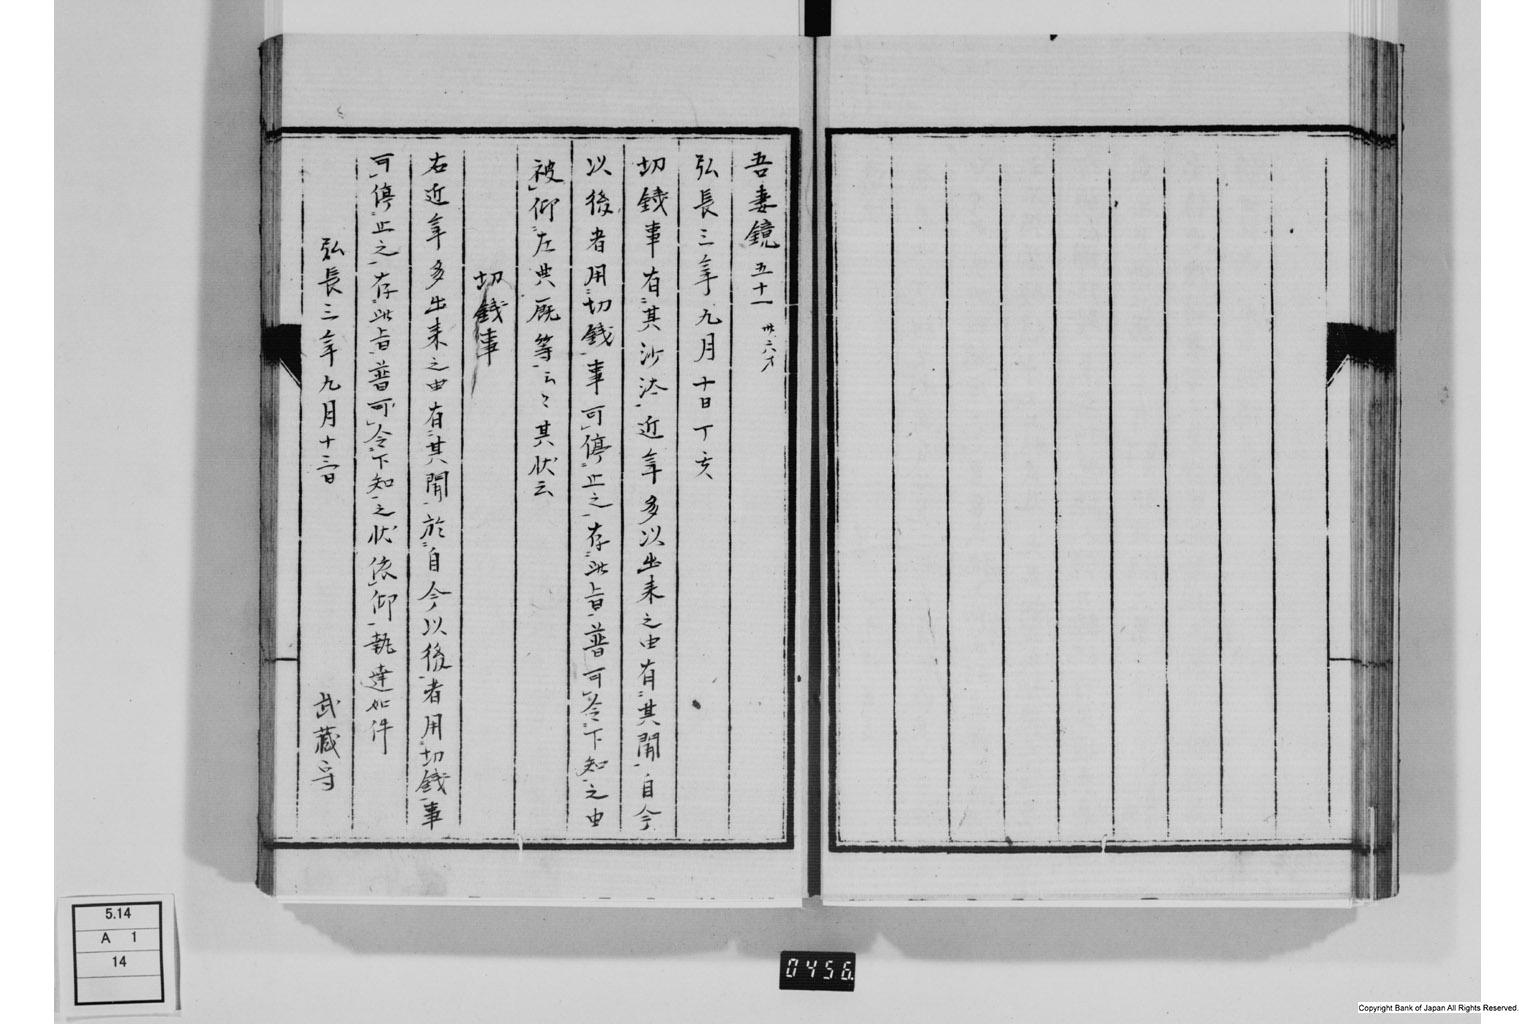 吾妻鏡 五十一 卅六才
弘長三年九月十日丁亥
切錢事有其沙汰近年多以出来之由有其聞自今
以後者用切錢事可停止之存此旨普可令下知之由
被仰左典厩等云々其状云
切錢事
右近年多出来之由有其聞於自今以後者用切錢事
可停止之存此旨普可令下知之状依仰執達如件
弘長三年九月十三日 武藏守
5.14
A 1
14
0456
Copyright Bank of Japan All Rights Reserved.